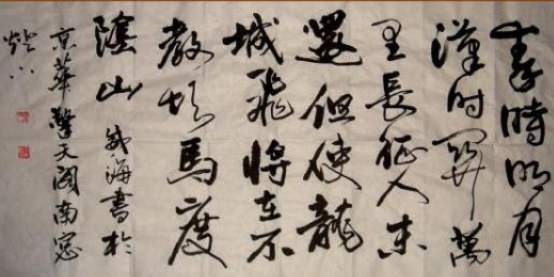 秦時明月
漢时關萬
里長征人未
還但使龍
城飛將在不
教胡馬度
陰山
海書於
京華擎天閣南窓
燈下